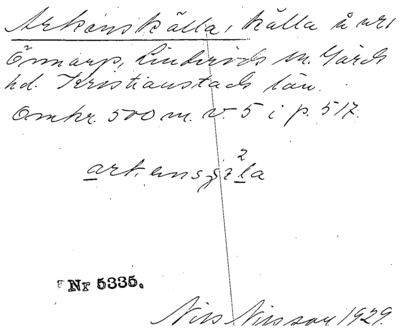 Arkenskälla, källa å nr 1
Örnarp, Linderöds sn. Gärds
hd. Kristianstads län.
Omkr. 500 m. v. 5 i p. 517.
2
Nr 5335.
Nils Nilsson 1929.